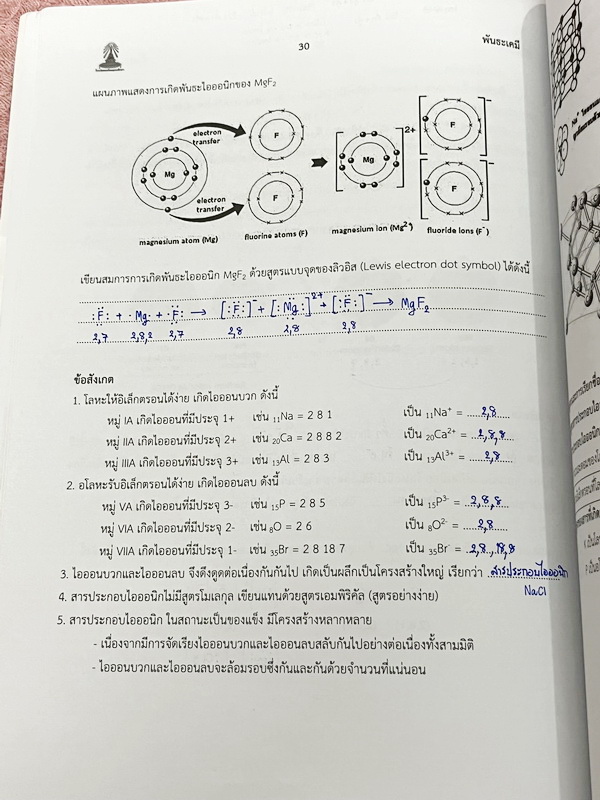 30
พันธะเคมี
แผนภาพแสดงการเกิดพันธะไอออนิกของ MgF₂
electron transfer
electron transfer
Mg
F
F
Mg
2+
F
-
F
-
magnesium atom (Mg)
fluorine atoms (F)
magnesium ion (Mg²⁺)
fluoride ions (F⁻)
เขียนสมการการเกิดพันธะไอออนิก MgF₂ ด้วยสูตรแบบจุดของลิวอิส (Lewis electron dot symbol) ได้ดังนี้
:F: + ·Mg· + :F: → [:F:]⁻ + [:Mg:]²⁺ + [:F:]⁻ → MgF₂
2,7 2,8,2 2,7 2,8 2,8 2,8
ข้อสังเกต
1. โลหะให้อิเล็กตรอนได้ง่าย เกิดไอออนบวก ดังนี้
หมู่ IA เกิดไอออนที่มีประจุ 1+ เช่น ₁₁Na = 2 8 1 เป็น ₁₁Na⁺ = 2,8
หมู่ IIA เกิดไอออนที่มีประจุ 2+ เช่น ₂₀Ca = 2 8 8 2 เป็น ₂₀Ca²⁺ = 2,8,8
หมู่ IIIA เกิดไอออนที่มีประจุ 3+ เช่น ₁₃Al = 2 8 3 เป็น ₁₃Al³⁺ = 2,8
2. อโลหะรับอิเล็กตรอนได้ง่าย เกิดไอออนลบ ดังนี้
หมู่ VA เกิดไอออนที่มีประจุ 3- เช่น ₁₅P = 2 8 5 เป็น ₁₅P³⁻ = 2,8,8
หมู่ VIA เกิดไอออนที่มีประจุ 2- เช่น ₈O = 2 6 เป็น ₈O²⁻ = 2,8
หมู่ VIIA เกิดไอออนที่มีประจุ 1- เช่น ₃₅Br = 2 8 18 7 เป็น ₃₅Br⁻ = 2,8,18,8
3. ไอออนบวกและไอออนลบ จึงดึงดูดต่อเนื่องกันกันไป เกิดเป็นผลึกเป็นโครงสร้างใหญ่ เรียกว่า สารประกอบไอออนิก
4. สารประกอบไอออนิกไม่มีสูตรโมเลกุล เขียนแทนด้วยสูตรเอมพิริคัล (สูตรอย่างง่าย) NaCl
5. สารประกอบไอออนิก ในสถานะเป็นของแข็ง มีโครงสร้างหลากหลาย
- เนื่องจากมีการจัดเรียงไอออนบวกและไอออนลบสลับกันไปอย่างต่อเนื่องทั้งสามมิติ
- ไอออนบวกและไอออนลบจะล้อมรอบซึ่งกันและกันด้วยจำนวนที่แน่นอน